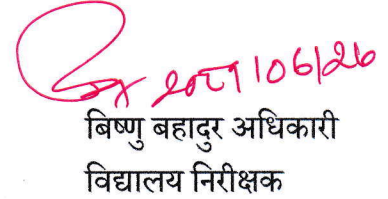 २०८१/06/26
बिष्णु बहादुर अधिकारी
विद्यालय निरीक्षक